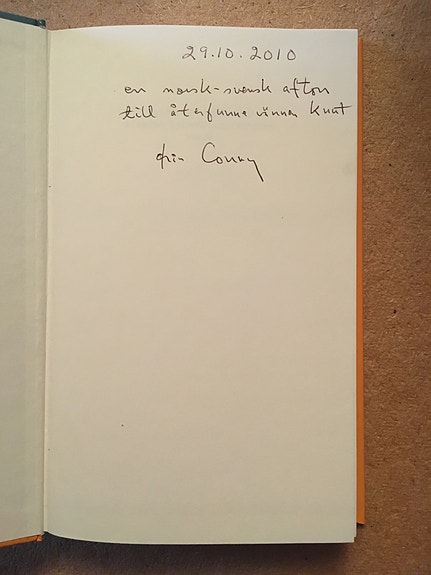 29.10.2010
en norsk-svensk afton
till återfunne vännen Knut
från Conny